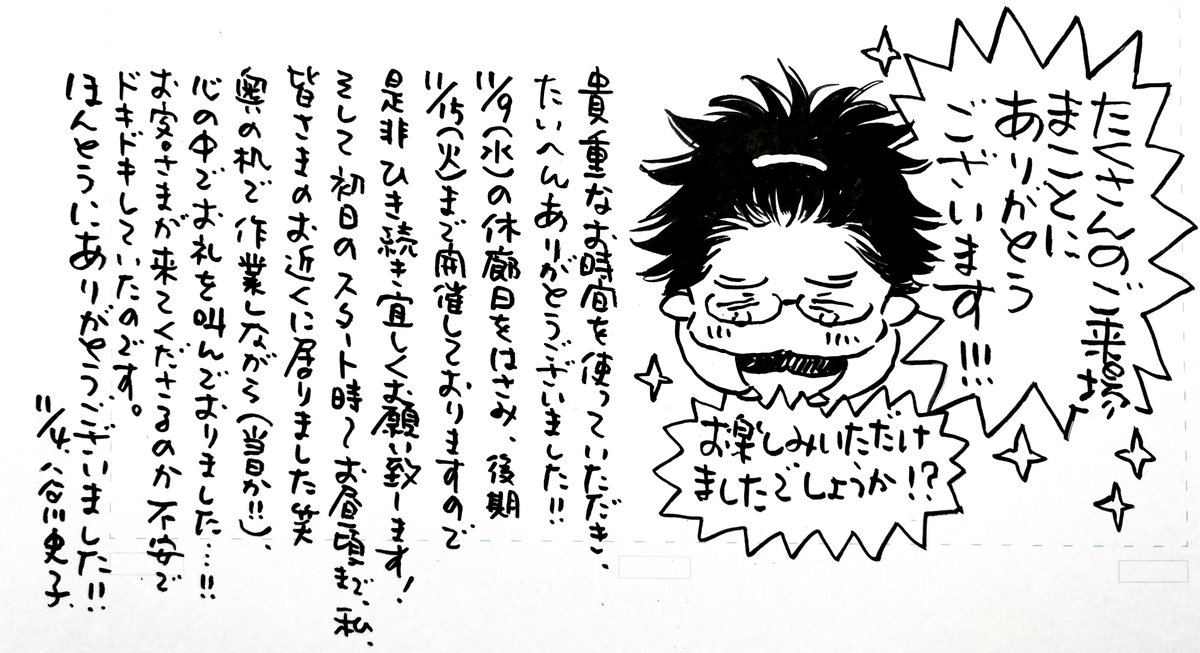 たくさんのご来場
まことに
ありがとう
ございます!!!
お楽しみいただけ
ましたでしょうか!?
貴重なお時間を使っていただき、
たいへんありがとうございました!!
11/9(水)の休廊日をはさみ、後期
11/15(火)まで開催しておりますので
是非ひき続き宜しくお願い致します!
そして初日のスタート時〜お昼頃まで、私、
皆さまのお近くに居りました笑
奥の机で作業しながら(当日か!!)、
心の中でお礼を叫んでおりました…!!
お客さまが来てくださるのか不安で
ドキドキしていたのです。
ほんとうにありがとうございました!!
11/4. 谷川史子.